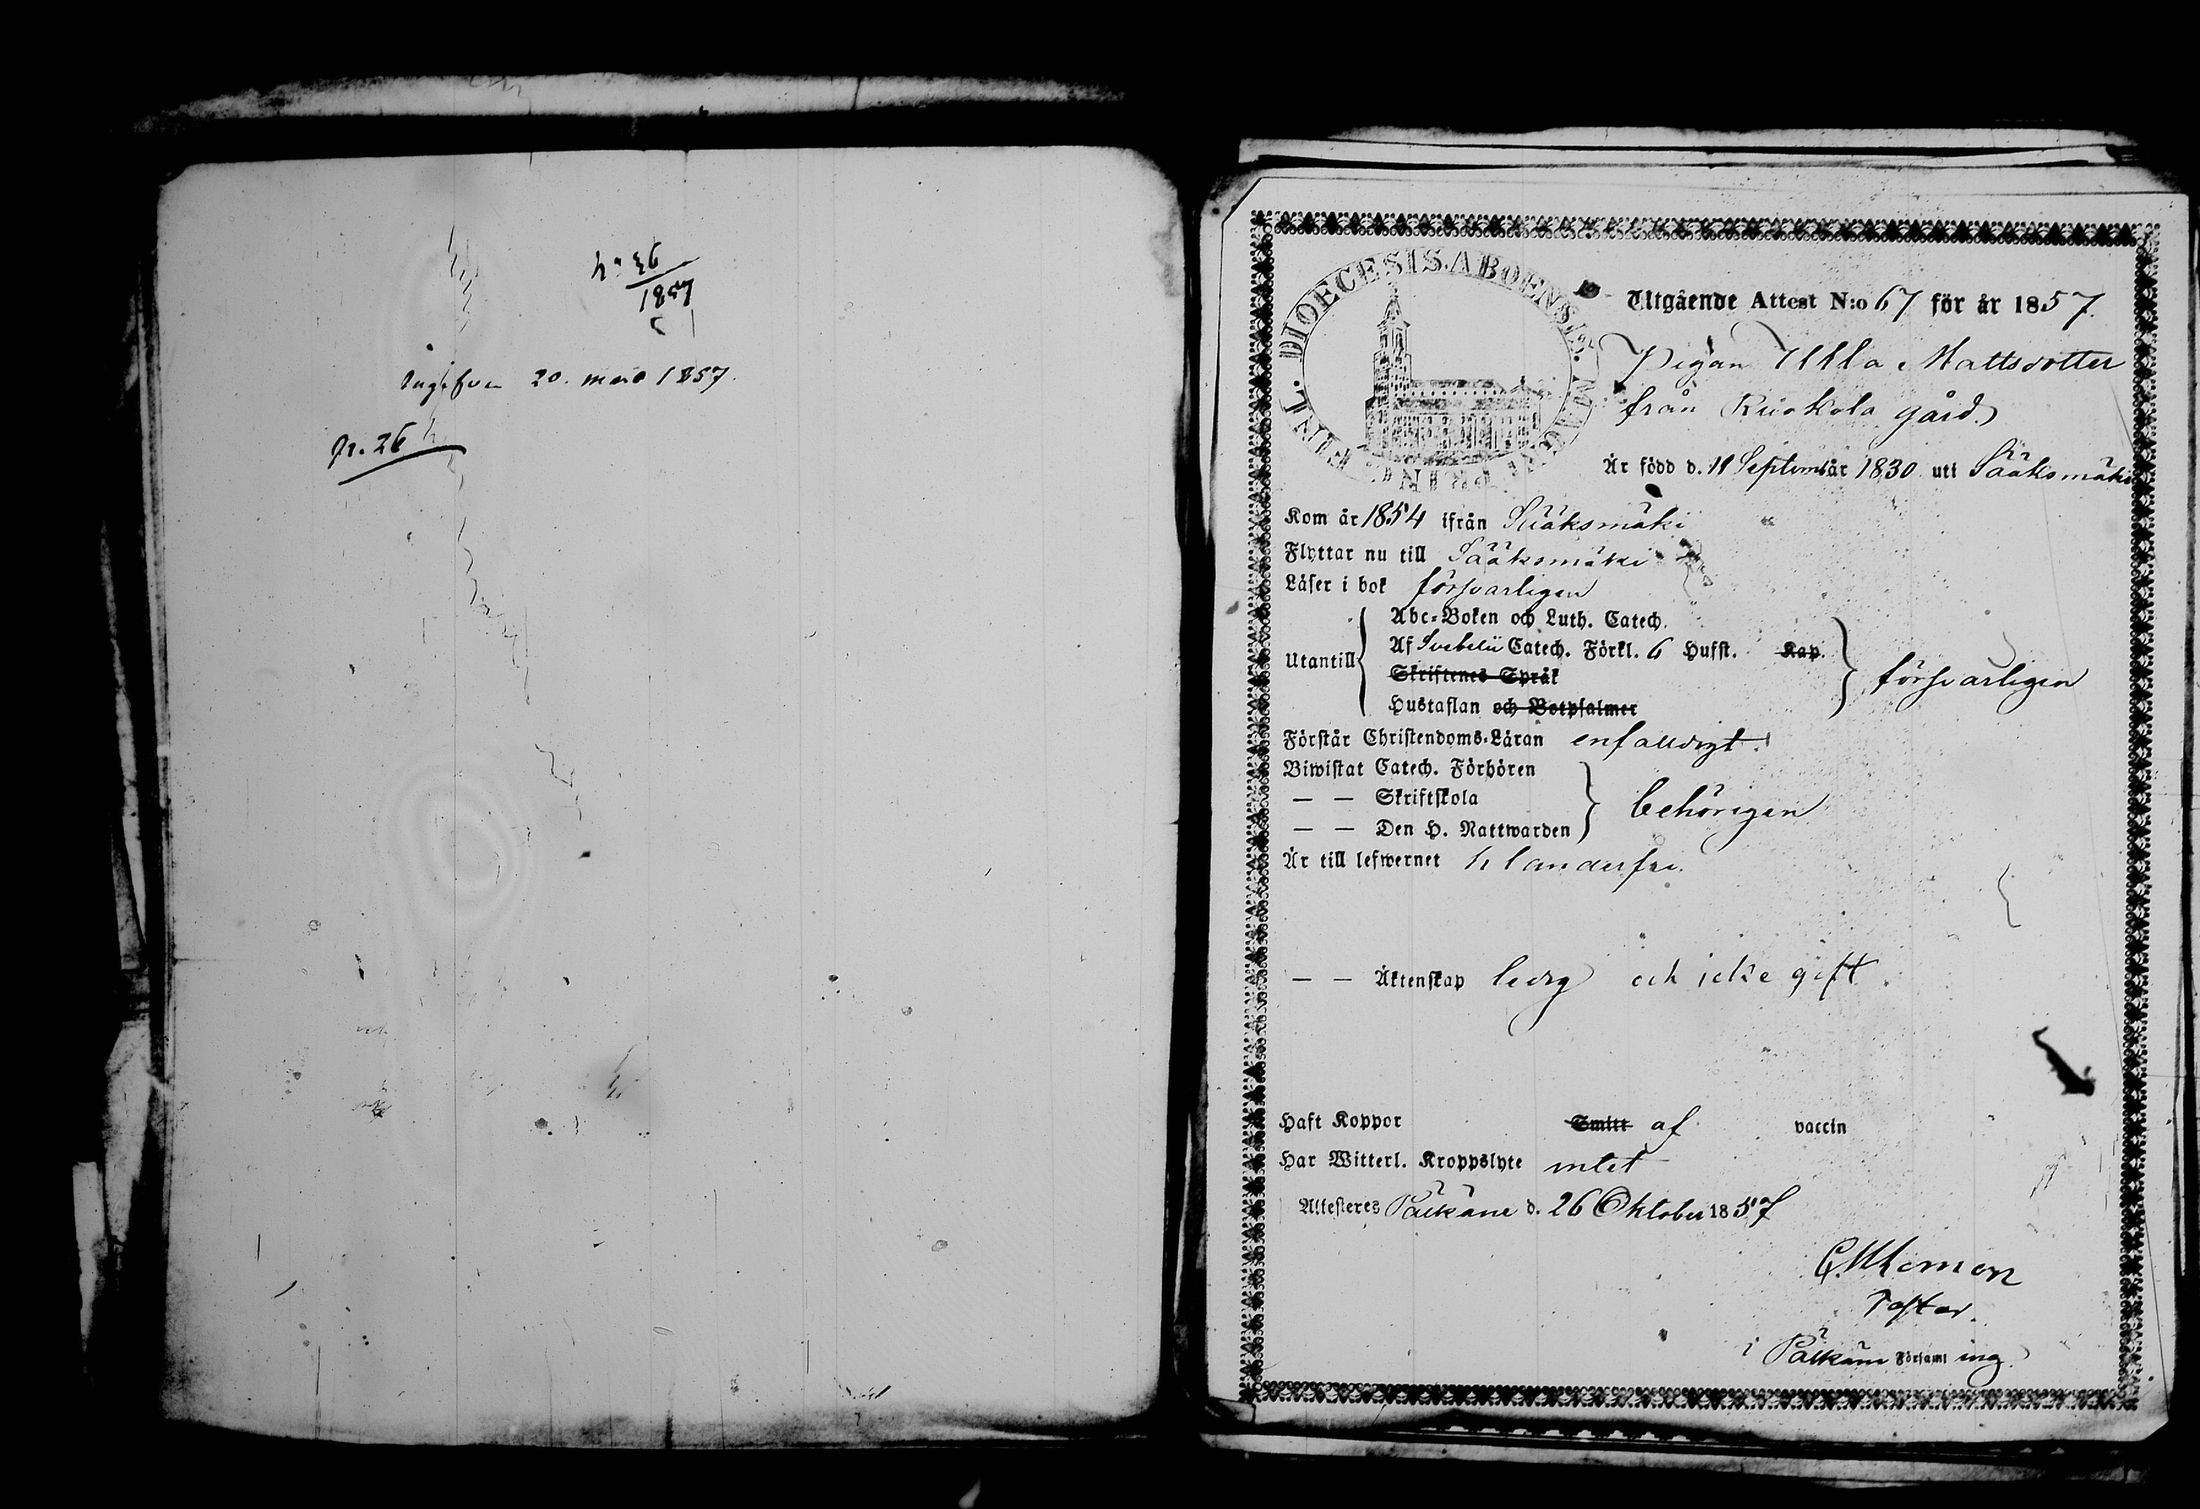 93.4
1857
20. mars 1857.
Pr. 26
FINL. DIOECESIS. ABOENSIS.
Utgående Attest N:o 67 för år 1857.
Pigan Ulla Mattsdotter
från Kuokola gård
Är född d. 11 Septembr år 1830 uti Sääksmäki
Kom år 1854 ifrån Sääksmäki
Flyttar nu till Sääksmäki
Läser i bok försvarligen
Utantill
Abc-Boken och Luth. Catech.
Af Svebelii Catech. Förkl. 6 Hufst. Kap.
Skriftenes Språk
Hustaflan och Botpsalmer
försvarligen
Förstår Christendoms-Läran enfaldigt.
Biwistat Catech. Förhören
— — Skriftskola
— — Den H. Nattwarden
behörigen
Är till lefwernet klanderfri.
— — Äktenskap ledig och icke gift
Haft Koppor Smitt af vaccin
Har Witterl. Kroppslyte intet
Attesteres Pälkäne d. 26 Oktober 1857
Pastor.
i Pälkäne Församl ing.